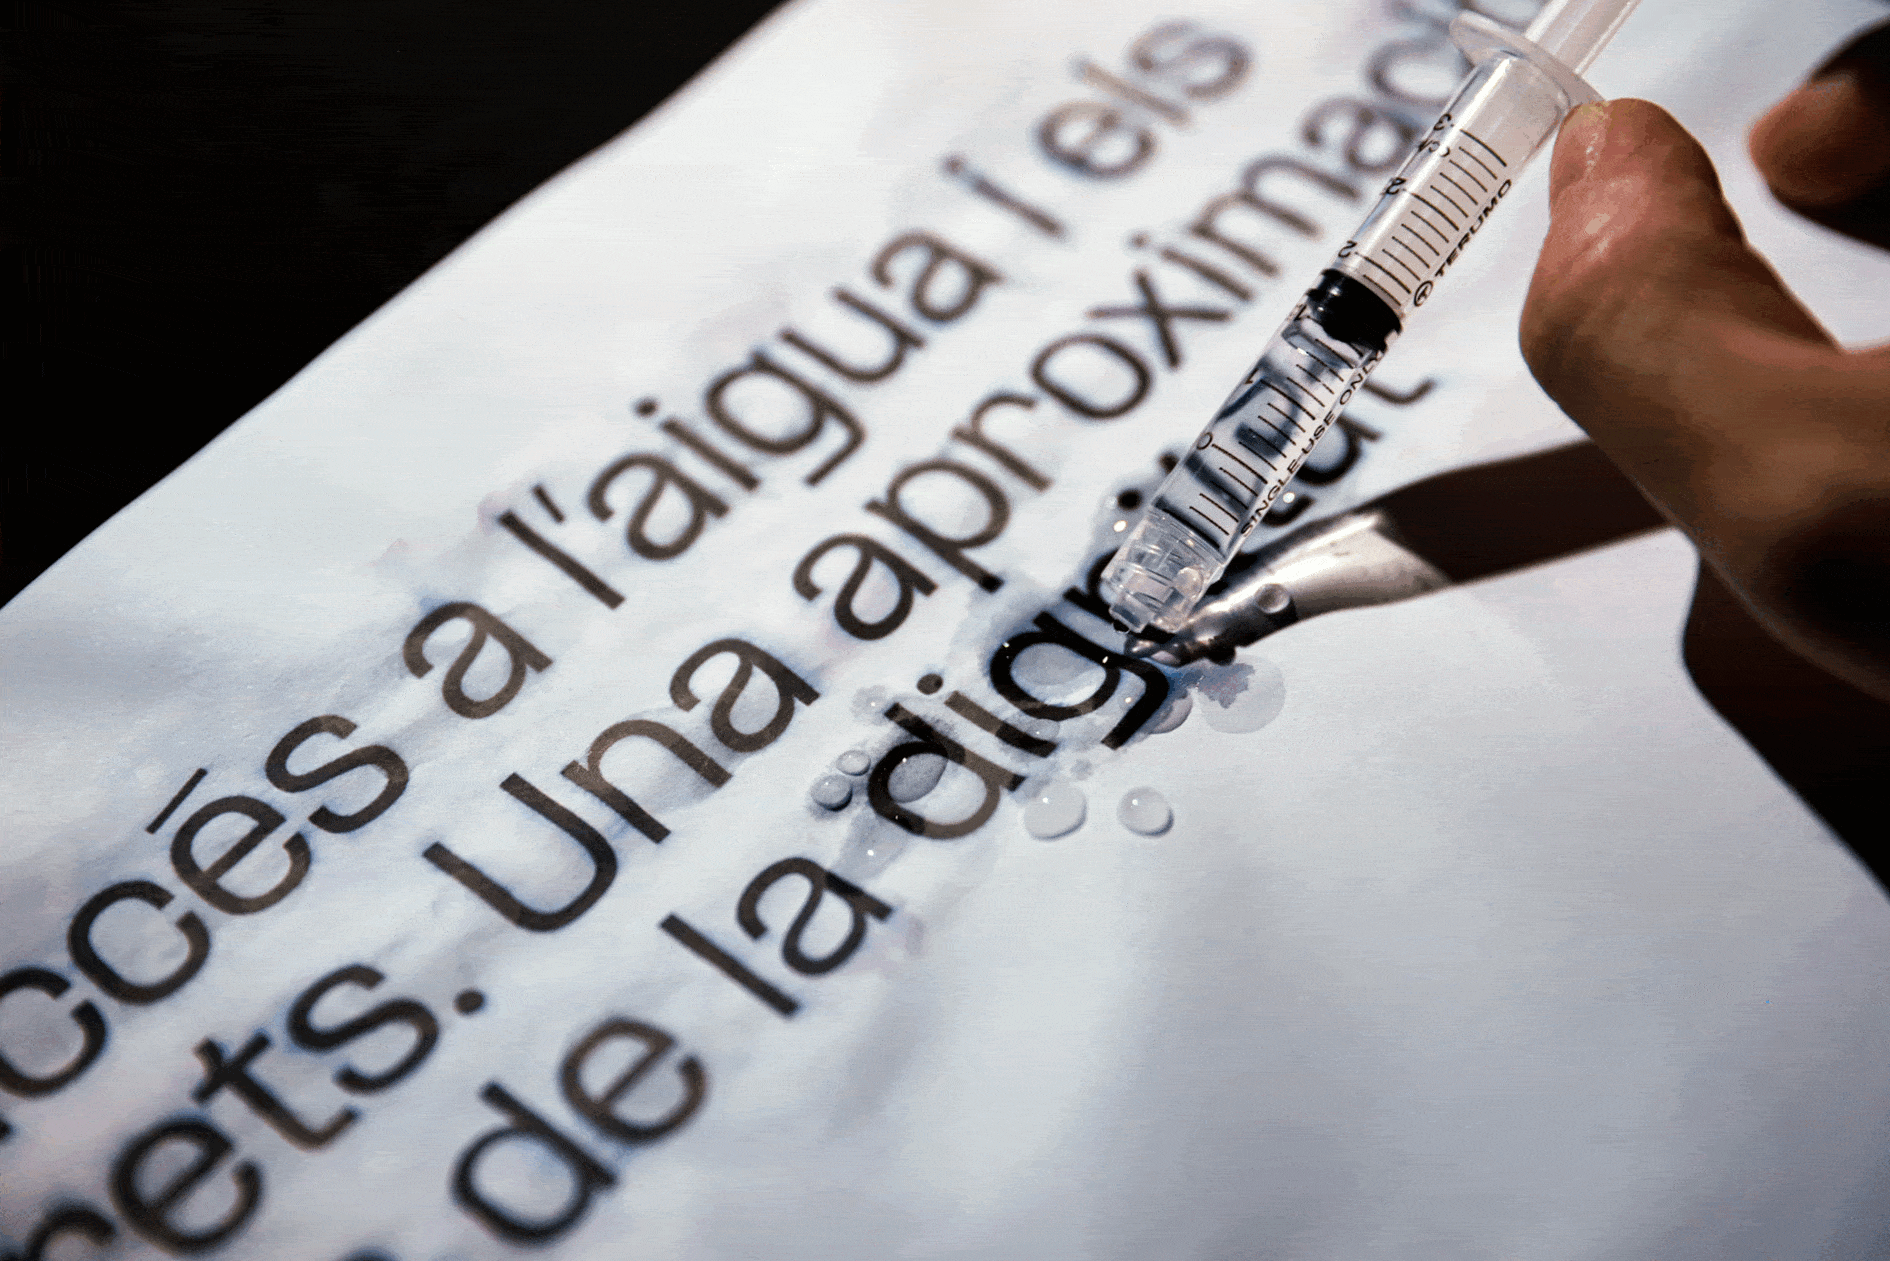 ccés a l'aigua i els
rets. Una aproximac
de la dignitat
TERUMO
SINGLE USE ONLY